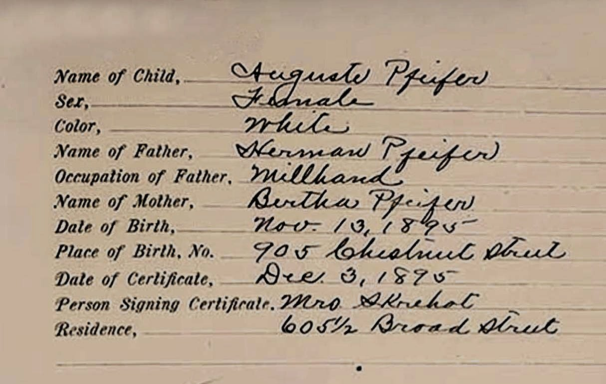 Name of Child, Auguste Pfeifer
Sex, Female
Color, White
Name of Father, Herman Pfeifer
Occupation of Father, Millhand
Name of Mother, Bertha Pfeifer
Date of Birth, Nov. 13, 1895
Place of Birth, No. 905 Chestnut Street
Date of Certificate, Dec. 3, 1895
Person Signing Certificate. Mrs
Residence, 605 1/2 Broad Street